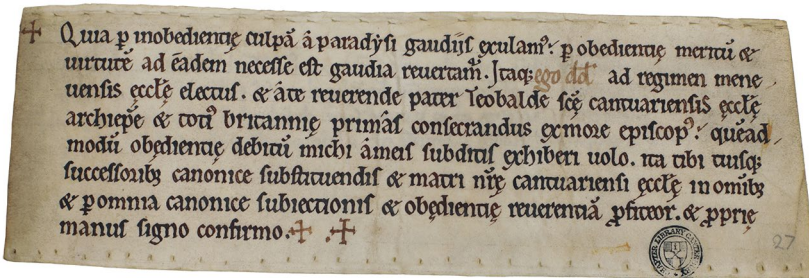 ✝ Quia p̱ inobedientię culpā á paradẏsi gaudijs exulamꝰ. p̱ obedientię meritū &
uirtutē ad eadem necesse est gaudia reuertamᷣ. Itaq; ego dd̄ ad regimen mene
uensis ęcclę̄ electus. & á te reuerende pater Teobalde scę̄ cantuariensis ęcclę̄
archiep̄e & totiꝰ britannię primás consecrandus ex more episcopꝰ. quēad
modū obędientię debitū michi á meis subditis exhiberi uolo. ita tibi tuisq;
successorib; canonice substituendis & matri nr̄ę cantuariensi ęcclę̄ in om̄ib;
& p̱ omnia canonice subiectionis & obędientię reuerentiā ꝓfiteor. & ꝓprię
manus signo confirmo. ✝ . ✝
27